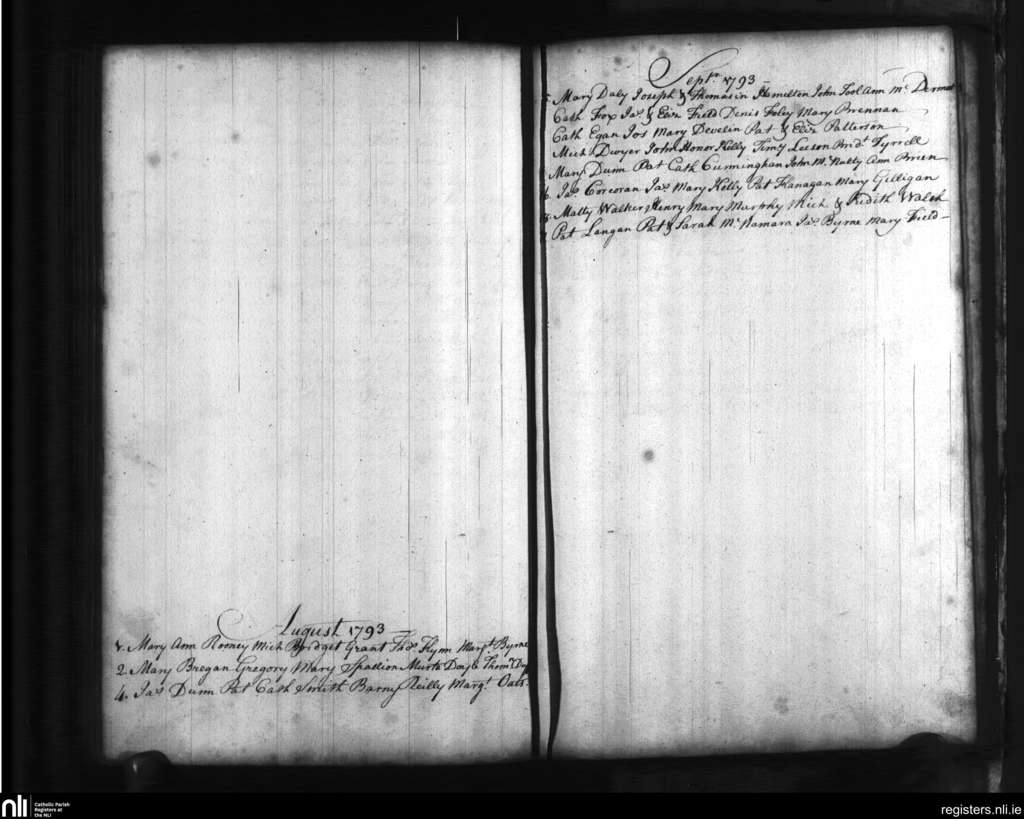 August 1793
1. Mary Ann Rooney Mich Bridget Grant Thos. Flynn Margt. Byrne
2. Mary Bregan Gregory Mary Spallion Murta Doyle Thoms.
4. Jas Dunn Pat Cath Smith Barny Reilly Margt. Oats
Septr. 1793
Mary Daly Joseph & Thomasin Hamelton John Tool Ann Mc. Dermot
Cath Fox Jas. & Eliz Field Denis Foley Mary Brennan
Cath Egan Jos Mary Develin Pat & Eliz Patterson
Mich Dwyer John Honor Kelly Timy Leeson Bridt. Tyrrell
Mary Dunn Pat Cath Cunningham John Mc. Nally Ann Brien
6. Jas Corcoran Jas Mary Kelly Pat Flanagan Mary Gilligan
8. Matty Walker Henry Mary Murphy Mich & Walsh
Pat Langan Pat & Sarah Mc. Namara Jas. Byrne Mary Field
nli Catholic Parish
Registers at
the NLI
registers.nli.ie